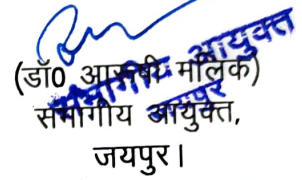 (डॉ0 आरूषी मलिक)
संभागीय आयुक्त,
जयपुर।
संभागीय आयुक्त
जयपुर